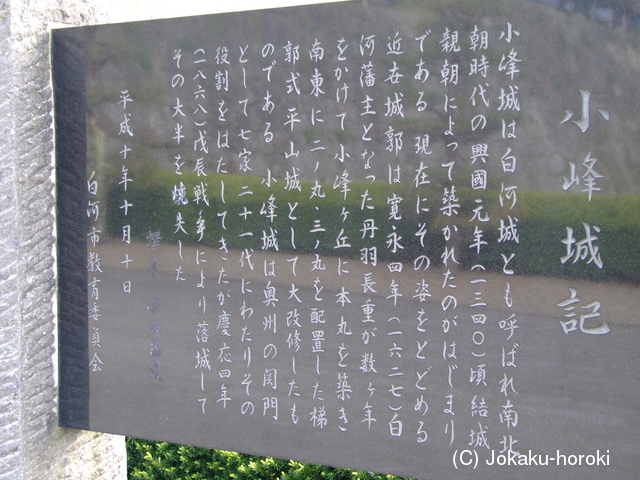 小峰城記
小峰城は白河城とも呼ばれ南北
朝時代の興國元年(一三四〇)頃結城
親朝によって築かれたのがはじまり
である 現在にその姿をとどめる
近世城郭は寛永四年(一六二七)白
河藩主となった丹羽長重が数ヶ年
をかけて小峰ヶ丘に本丸を築き
南東に二ノ丸・三ノ丸を配置した梯
郭式平山城として大改修したも
のである 小峰城は奥州の関門
として七家二十一代にわたりその
役割をはたしてきたが慶応四年
(一八六八)戊辰戦争により落城して
その大半を焼失した
平成十年十月十日
白河市教育委員会
(C) Jokaku-horoki